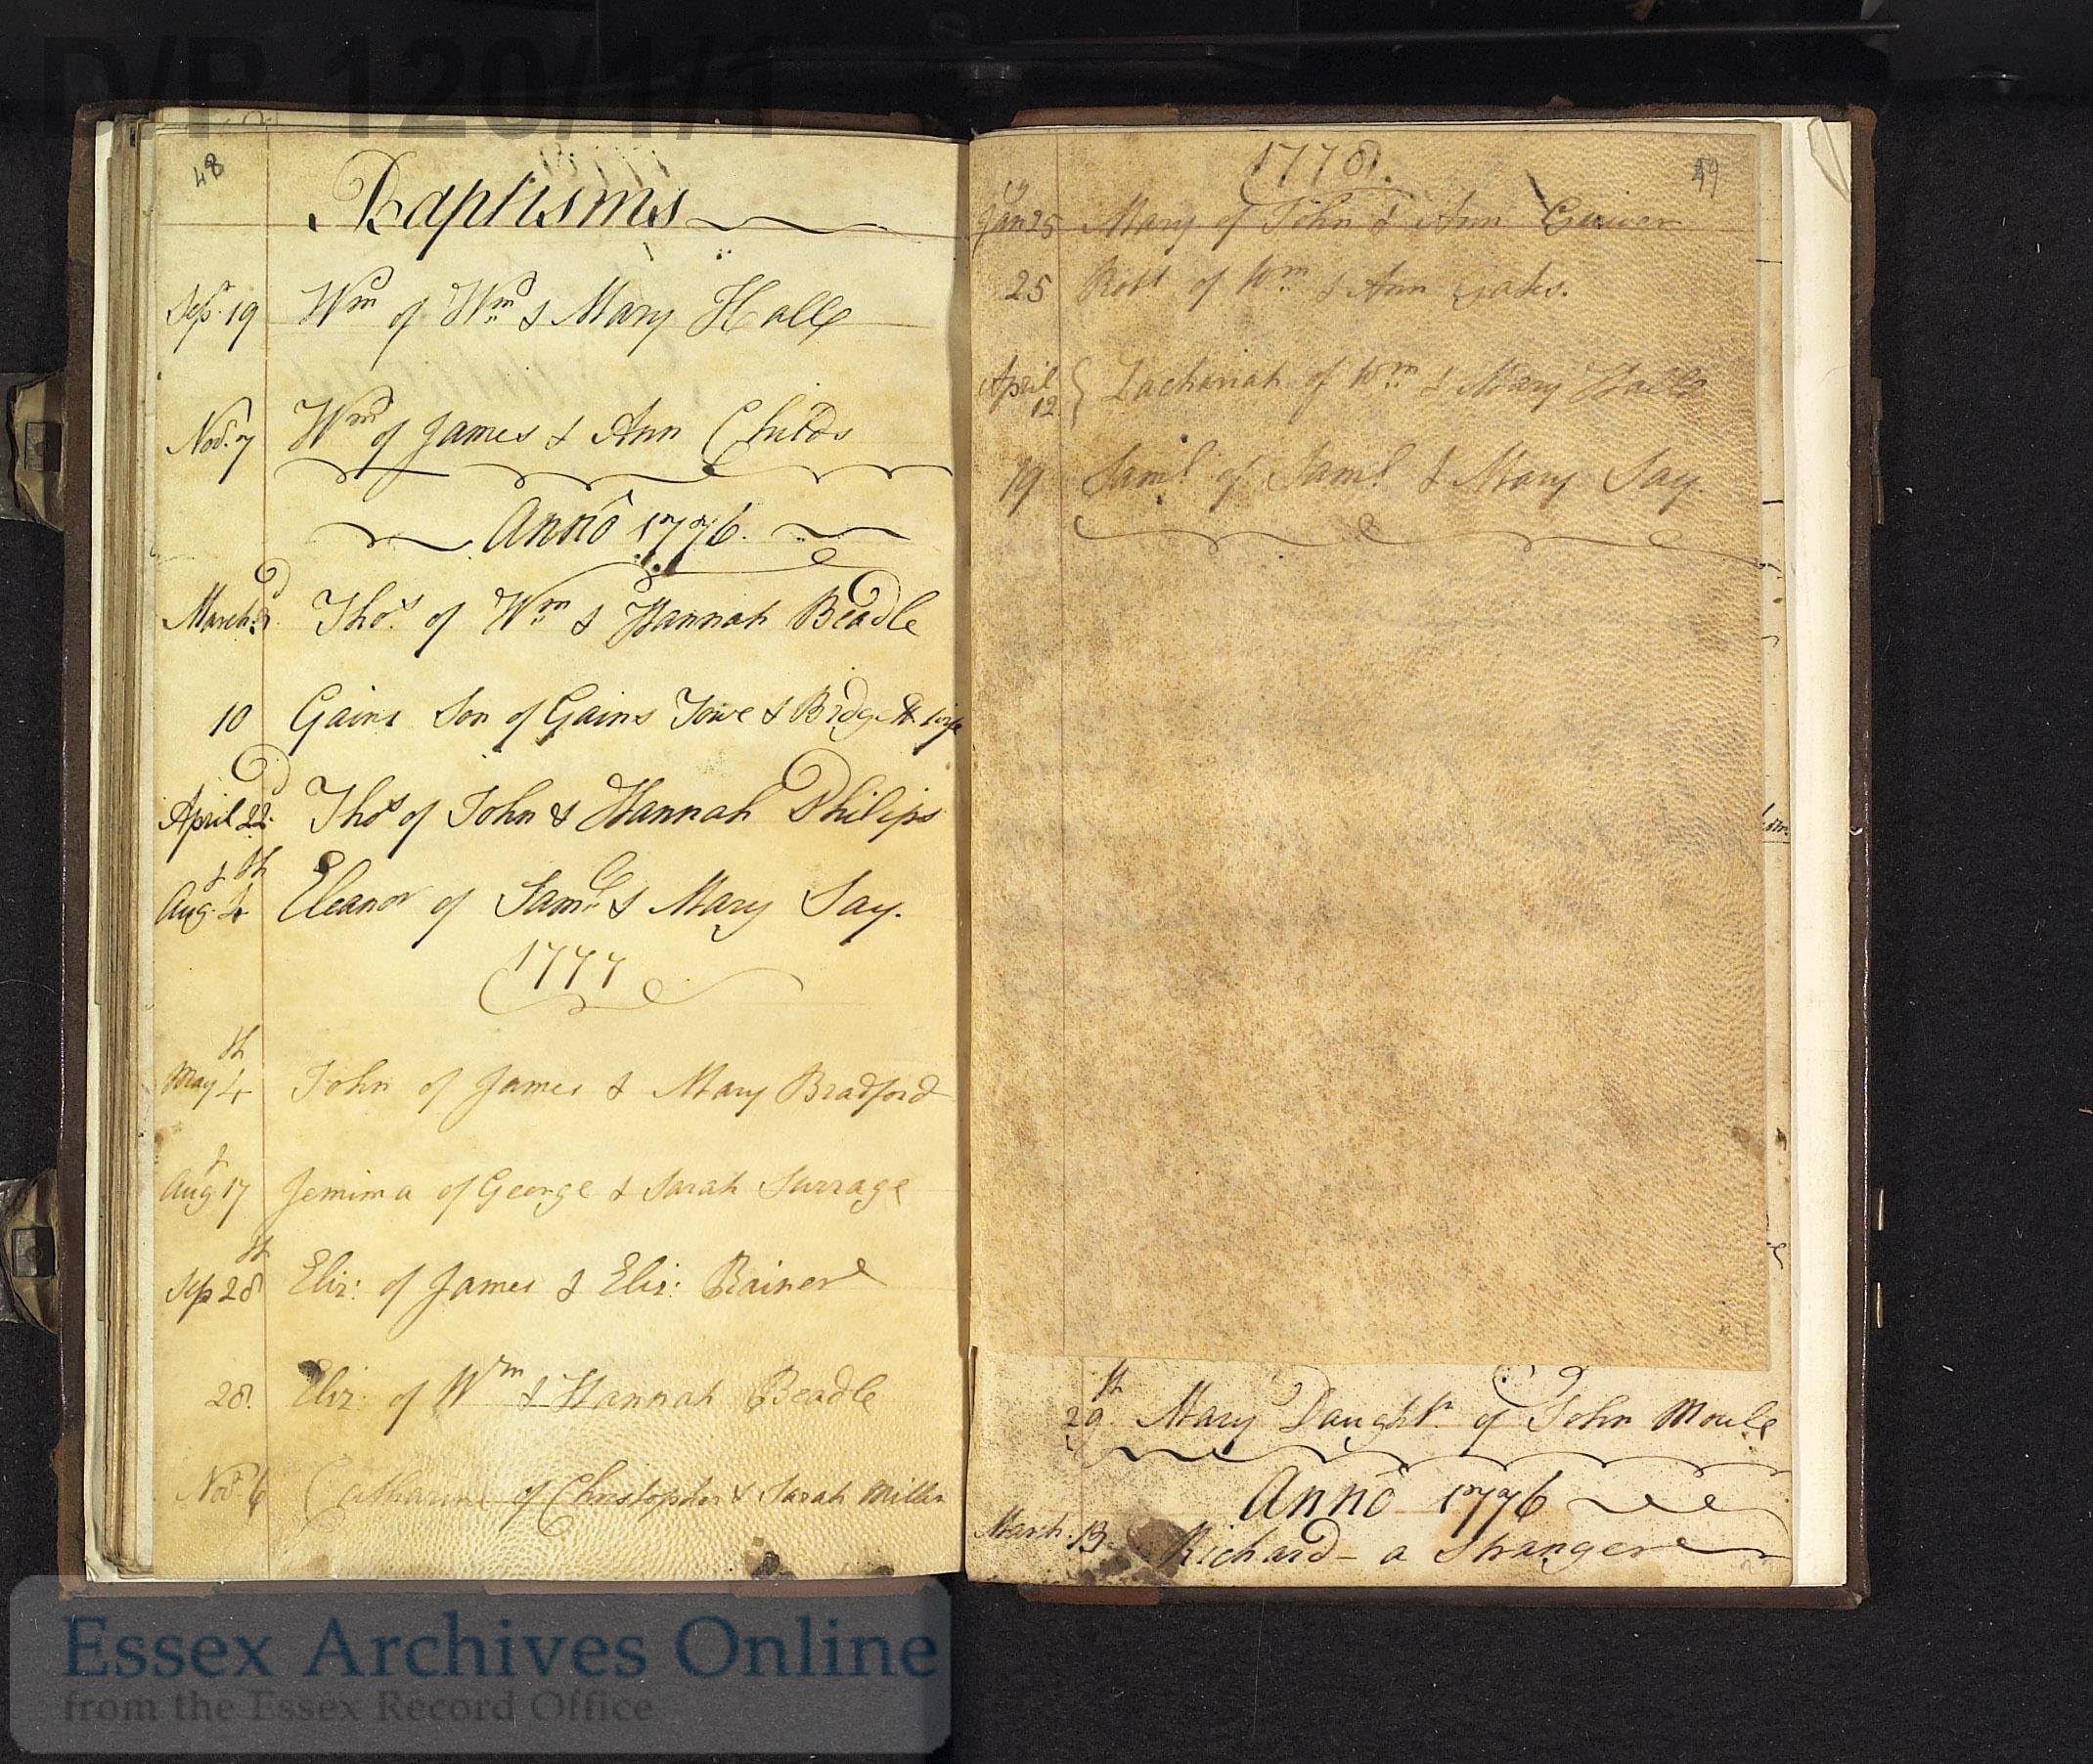 D/P 120/1/1
48
Baptisms
Sepr. 19 Wm of Wm & Mary Halls
Nov. 7 Wm of James & Ann Childs
Anno 1776.
March 3d Thos. of Wm & Hannah Beadle
10 Gains Son of Gains Towe & Bridgett wife
April 22d Thos of John & Hannah Philips
Augt 4th Eleanor of Saml & Mary Say.
1777
May 4th John of James & Mary Bradford
Augt 17 Jemima of George & Sarah Surrage
Sep 28th Eliz: of James & Eliz: Rainer
28. Eliz: of Wm & Hannah Beadle
Novr. 6 Catharine of Christopher & Sarah Miller
1778.
49
Jany 25 Mary of John & Ann
25 Robt of Wm & Ann
April 12 Zachariah of Wm & Mary Halls
19 Saml of Saml & Mary Say.
29th Mary Daughtr of John Moule
Anno 1776
March. 13. Richard - a Stranger
Essex Archives Online
from the Essex Record Office